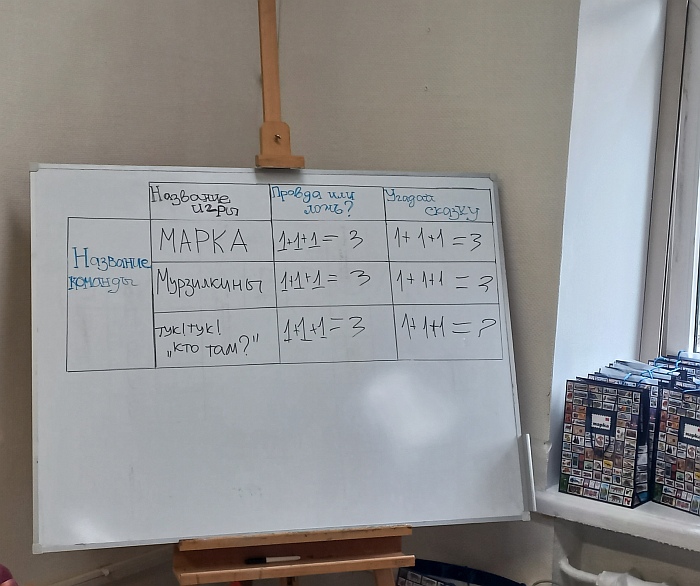 Название игры
Правда или ложь?
Угадай сказку
Название команды
МАРКА
1+1+1 = 3
1+1+1 = 3
Мурзилкины
1+1+1 = 3
1+1+1 = 3
тук! тук! „кто там?"
1+1+1 = 3
1+1+1 = ?
марка